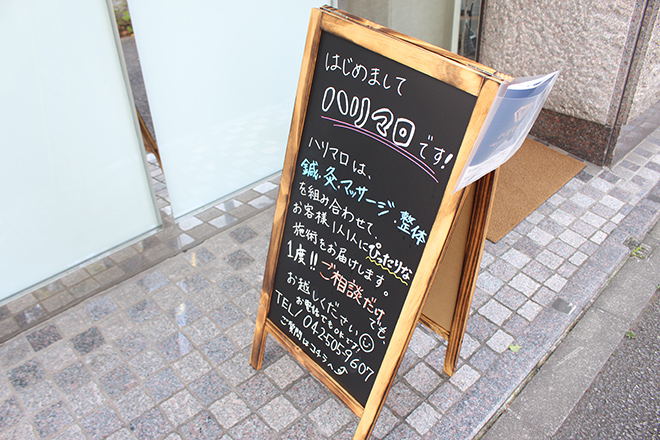 はじめまして
ハリマロです!
ハリマロは、
鍼・灸・マッサージ・整体
を組み合わせて、
お客様1人1人にぴったりな
施術をお届けします。
1度!!ご相談だけでも、
お越しください
お電話でもOKです!
TEL/0425059607
ご質問はコチラへ